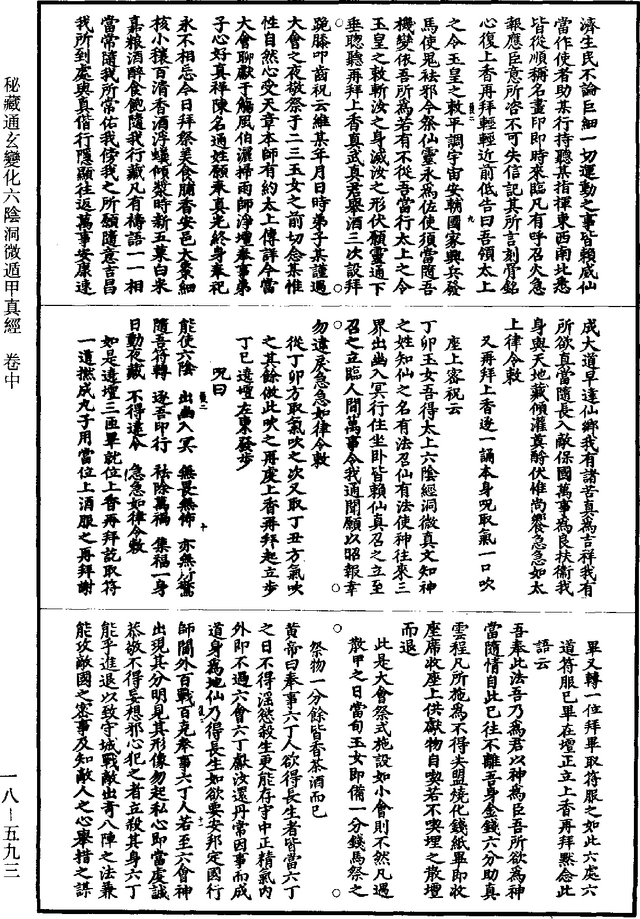 濟生民不論巨細一切運動之事皆賴威仙
當作使者助某行持聽某指揮東西南北悉
皆從順稱名畫印即時來臨凡有呼召火急
報應臣意所咨不可失信記其所言刻骨銘
心復上香再拜輕輕近前低告曰吾領太上
之令玉皇之敕平調宇宙安朝國家興兵發
馬使鬼祛邪今祭仙靈永為佐使須當隨吾
機變依吾所為若有不從吾當行太上之令
玉皇之敕斬汝之身滅汝之形伏願靈通下
垂聰聽再拜上香真武真君舉酒三次設拜
跪膝叩齒祝云維某年月日時弟子某謹遇
大會之夜敬祭于二三玉女之前切念某惟
性自然心受天章本師有約太上傳詳今當
大會聊獻于觴風伯灑掃雨師淨壇奉事弟
子心好真祥陳名通姓願奉真光終身奉祀
永不相忘今日拜祭美食脯香安邑大棗細
核小穰百清香酒浮蟻傾漿時新五菓白米
嘉粮酒醉食飽隨我行藏凡有禱語一一相
當常隨我所常佑我傍我之所願隨意吉昌
我所到處與真偕行隱顯往返萬事安康速
成大道早達仙鄉我有諸苦真為吉祥我有
所欲真當隨長入敵保國萬事為良扶衛我
身與天地藏傾灌奠酹伏惟尚饗急急如太
上律令敕
又再拜上香遂一誦本身呪取氣一口吹
座上密祝云
丁卯玉女吾得太上六陰經洞微真文知神
之姓知仙之名有法召仙有法使神往來三
界出幽入冥行住坐卧皆賴仙真召之立至
召之立臨人間萬事令我通聞願以昭報幸
勿違戾急急如律令敕
從丁卯方取氣吹之次又取丁丑方氣吹
之其餘倣此吹之再虔上香再拜起立步
丁巳遶壇左東發步
呪曰
能使六陰 出幽入冥 無畏無怖 亦無所驚
隨吾符轉 逐吾印行 祛除萬禍 集福一身
日動夜藏 不得違令 急急如律令敕
如是遶壇三匝畢就位上香再拜訖取符
一道撚成丸子用當位上酒服之再拜謝
畢又轉一位拜畢取符服之如此六處六
道符服巳畢在壇正立上香再拜黙念此
語云
吾奉此法吾乃為君以神為臣吾所欲為神
當隨情自此已往不離吾身金錢六分助真
雲程凡所施為不得失盟燒化錢紙畢即收
座席收座上供獻物自喫若不喫埋之散壇
而退
此是大會祭式施設如小會則不然凡遇
散甲之日當旬玉女即備一分錢馬祭之
祭物一分餘皆香茶酒而已
黃帝曰奉事六丁人欲得長生者皆當六丁
之日不得淫慾殺生更能存守中正精氣內
外即不過六會六丁獻汝還丹常因事而成
道身為地仙乃得長生如欲要安邦定國行
師閫外百戰百克奉事六丁人若至六會神
出現其分明見其形像勿起私心即當虔誠
恭敬不得妄想邪心犯之者立殺其身六丁
能乎進退以致守城戰敵出奇八陣之法兼
能攻敵國之密事及知敵人之心舉措之謀
秘藏通玄變化六陰洞微遁甲真經 卷中
一八－五九三